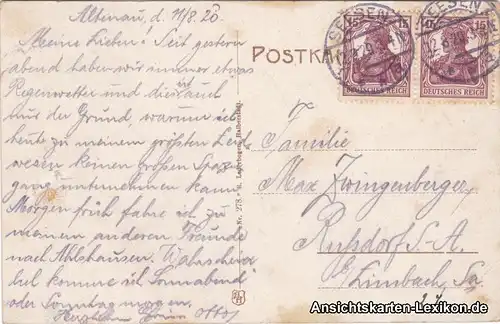 Altenau, d. 11/8. 20.
Meine Lieben! Seit gestern
abend haben wir immer etwas
Regenwetter und dies ist auch
nur der Grund, warum ich
heute zu meinem größten Leid-
wesen keinen großen Spazier-
gang unternehmen kann.
Morgen früh fahre ich zu
meinem anderen Freunde
nach Ahlshausen. Wahrschein-
lich komme ich Sonnabend
oder Sonntag morgen.
Otto
POSTKARTE
SEESEN
SEESEN
15 15
15 15
DEUTSCHES REICH
DEUTSCHES REICH
Familie
Max Zwingenberger,
Rußdorf S.-A.
b/ Limbach, Sa.
Ansichtskarten-Lexikon.de